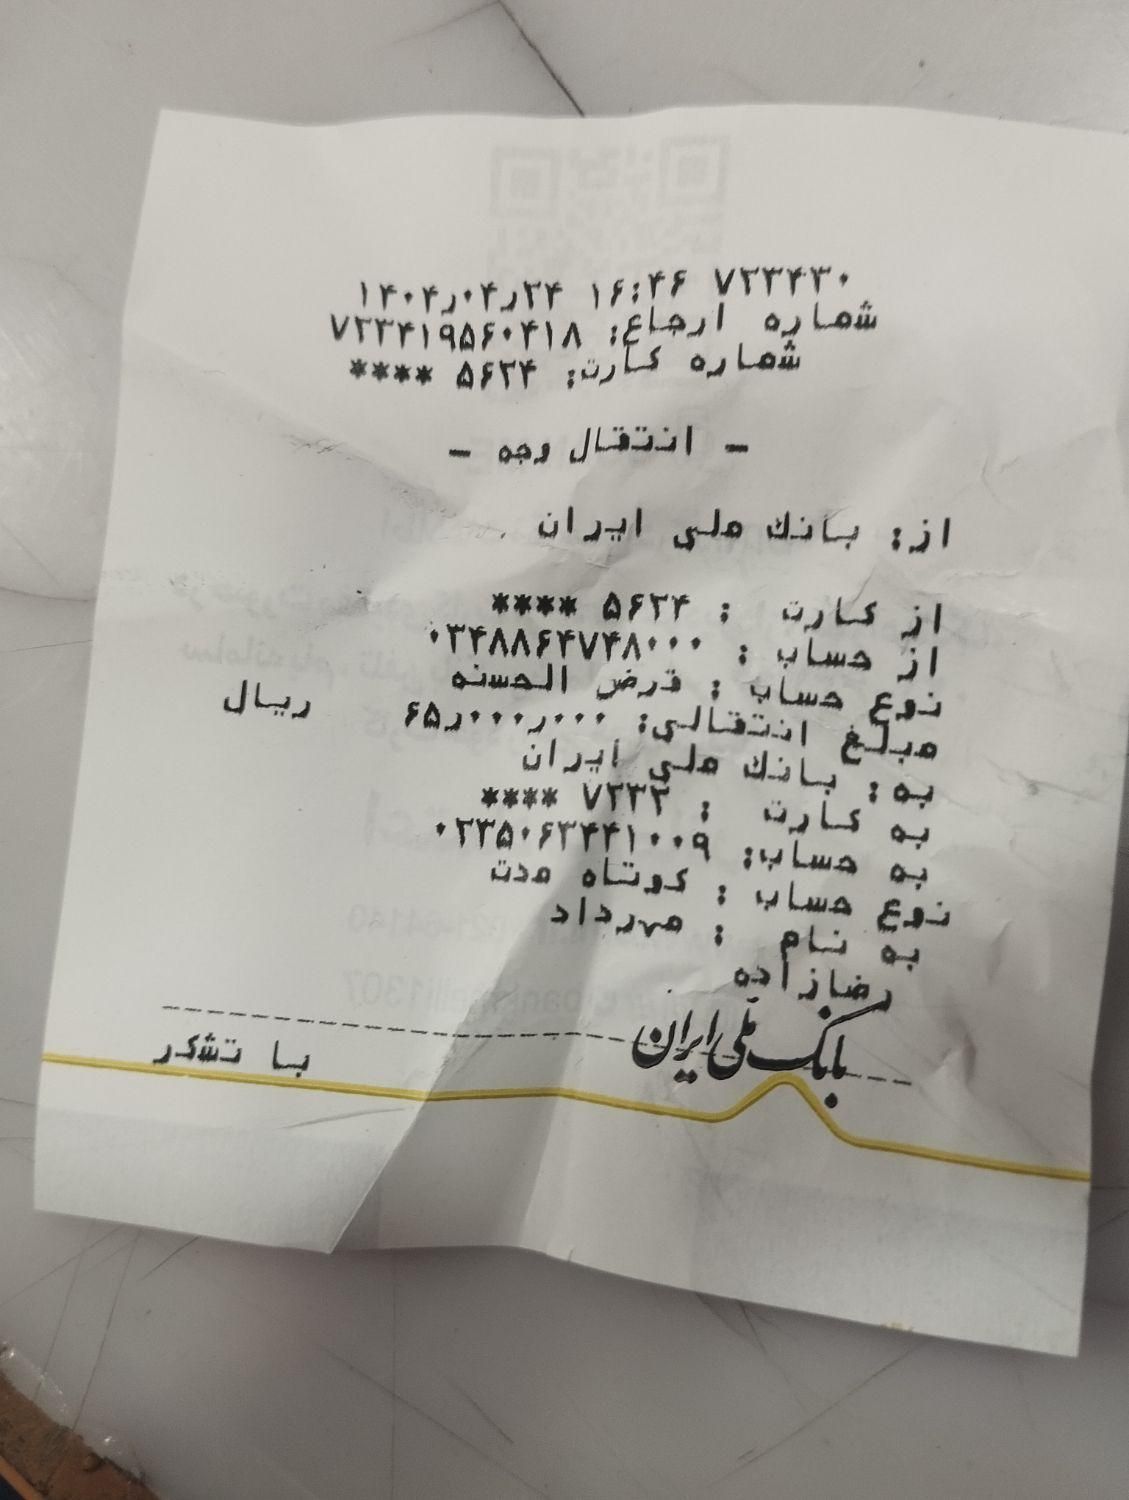 ۱۴۰۴ر۰۴ر۲۴ ۱۶:۴۶ ۷۲۳۴۳۰
شماره ارجاع: ۷۲۳۴۱۹۵۶۰۴۱۸
شماره کارت: ۵۶۲۴ ****
- انتقال وجه -
از: بانك ملی ایران
از کارت : ۵۶۲۴ ****
از حساب : ۰۳۴۸۸۶۴۷۴۸۰۰۰
نوع حساب : قرض الحسنه
مبلغ انتقالی: ۶۵ر۰۰۰ر۰۰۰ ریال
به: بانك ملی ایران
به کارت : ۷۲۳۲ ****
به حساب: ۰۲۳۵۰۶۳۴۴۱۰۰۹
نوع حساب : کوتاه مدت
به نام : مهرداد
رضازاده
بانک ملی ایران
با تشکر